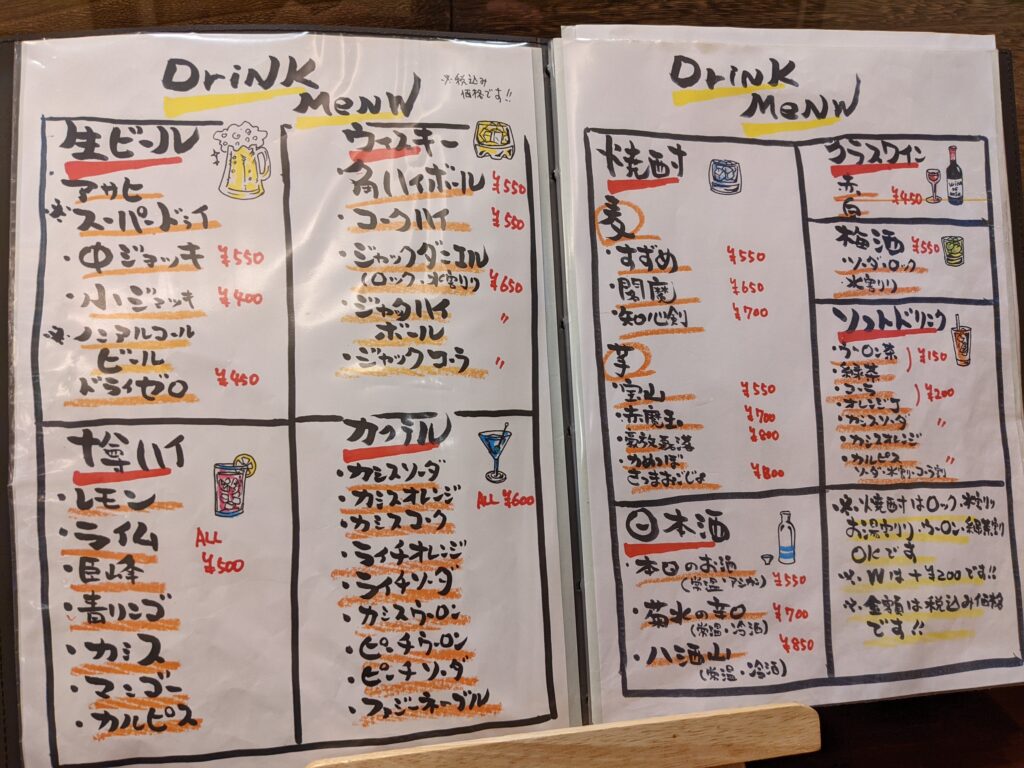 DriNK
MeNU
※税込み
価格です!!
生ビール
アサヒ
※スーパードライ
・中ジョッキ ¥550
・小ジョッキ ¥400
※ノンアルコール
ビール
ドライゼロ ¥450
ウィスキー
・角ハイボール ¥550
・コークハイ ¥550
・ジャックダニエル
(ロック・水割り) ¥650
・ジャックハイ
ボール 〃
・ジャックコーラ 〃
樽ハイ
・レモン
・ライム
ALL
¥500
・巨峰
・青リンゴ
・カシス
・マンゴー
・カルピス
カクテル
・カシスソーダ
・カシスオレンジ
ALL ¥600
・カシスコーク
・ライチオレンジ
・ライチソーダ
・カシスウーロン
・ピーチウーロン
・ピーチソーダ
・ファジーネーブル
DriNK
MeNU
焼酎
麦
・すずめ ¥550
・閻魔 ¥650
・知心剣 ¥700
芋
・宝山 ¥550
・赤魔王 ¥700
¥800
・かめつぼ
さつまおごじょ ¥800
日本酒
・本日のお酒
(常温・アツカン) ¥550
・菊水の辛口 ¥700
(常温・冷酒)
・八海山 ¥850
(常温・冷酒)
グラスワイン
赤 ¥450
白
梅酒 ¥550
・ソーダ・ロック
・水割り
ソフトドリンク
・ウーロン茶 ¥150
・緑茶
・コーラ ¥200
・オレンジ
・カシスソーダ 〃
・カシスオレンジ
・カルピス 〃
ソーダ・水割り・コーラ割り
※焼酎はロック・水割り
お湯割り・ウーロン・緑茶割り
OKです
※Wは+¥200です!!
※金額は税込み価格
です!!